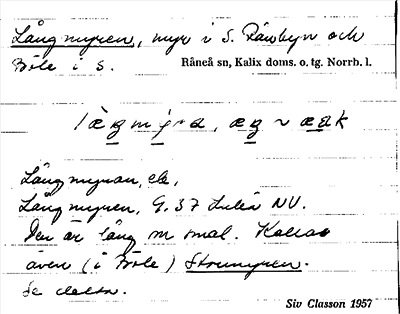 Långmyren, myr i S. Råneбyn och
Böle i S. Råneå sn, Kalix doms. o. tg. Norrb. l.
Långmyran, ek,
Långmyren, G. 37 Luleå NV.
Den är lång o smal. Kallas
även (i Böle) Stormyren.
Se detta.
Siv Classon 1957